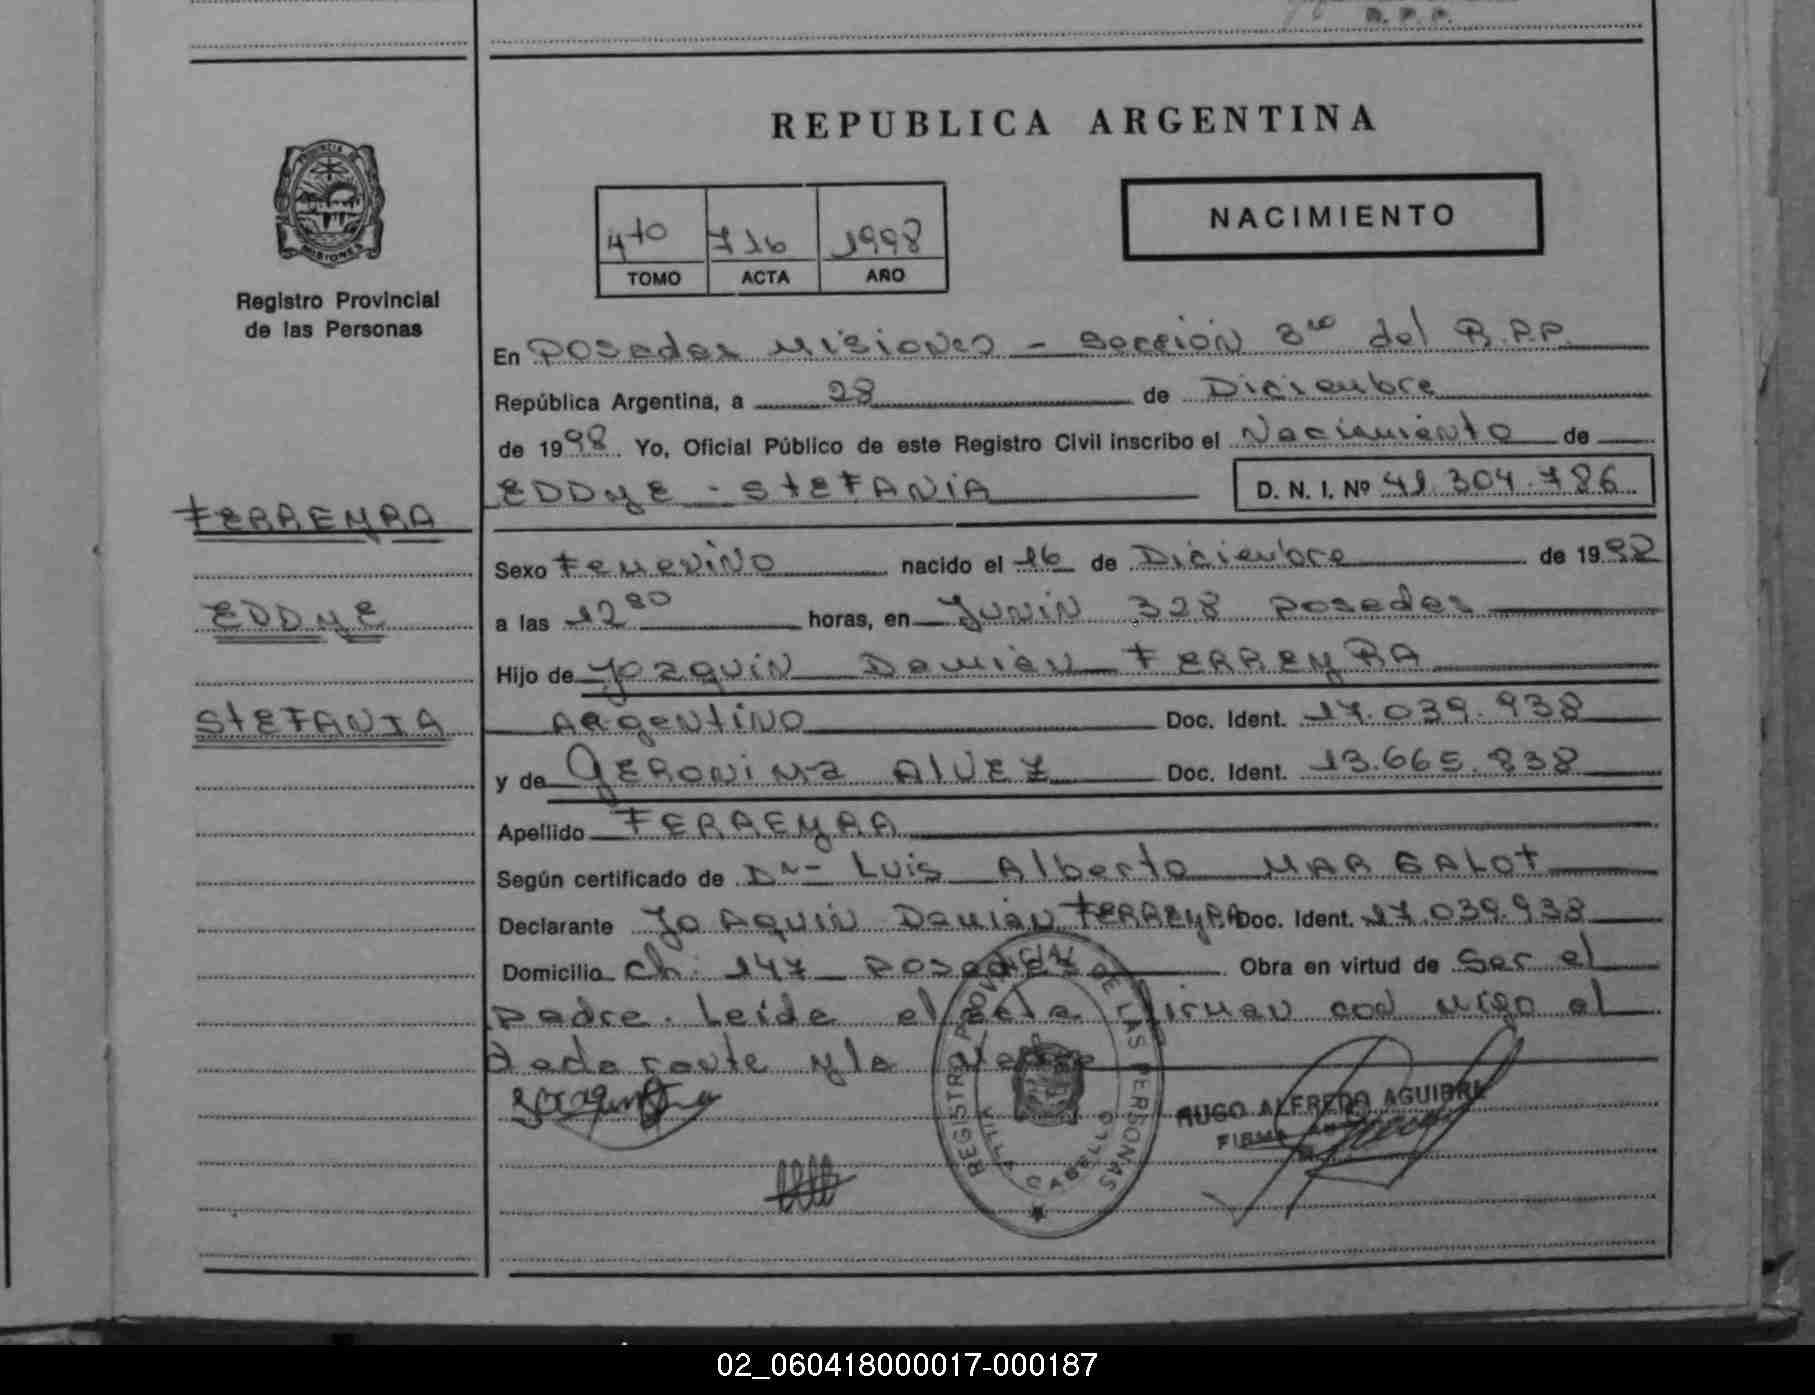 R. P. P.
REPUBLICA ARGENTINA
PROVINCIA DE MISIONES
Registro Provincial
de las Personas
NACIMIENTO
4to 716 1998
TOMO ACTA AÑO
En Posadas Misiones - Sección 3ra del R.P.P.
República Argentina, a 28 de Diciembre
de 1998 Yo, Oficial Público de este Registro Civil inscribo el Nacimiento de
EDDYE - StEFANIA D. N. I. Nº 41.304.786
FERREYRA
EDDYE
StEFANIA
Sexo Femenino nacido el 16 de Diciembre de 1998
a las 12 horas, en Junin 328 Posadas
Hijo de Joaquin Damián FERREYRA
Argentino Doc. Ident. 17.039.938
y de GERONIMA ALVEZ Doc. Ident. 13.665.838
Apellido FERREYRA
Según certificado de Dr- Luis Alberto MARGALOT
Declarante Joaquin Damián FERREYRA Doc. Ident. 17.039.938
Domicilio Ch. 147 Posadas Obra en virtud de Ser el
padre. Leída el acta firman con migo el
declarante y la Madre
REGISTRO PROVINCIAL DE LAS PERSONAS
VILLA CABELLO
HUGO ALFREDO AGUIRRE
02_060418000017-000187